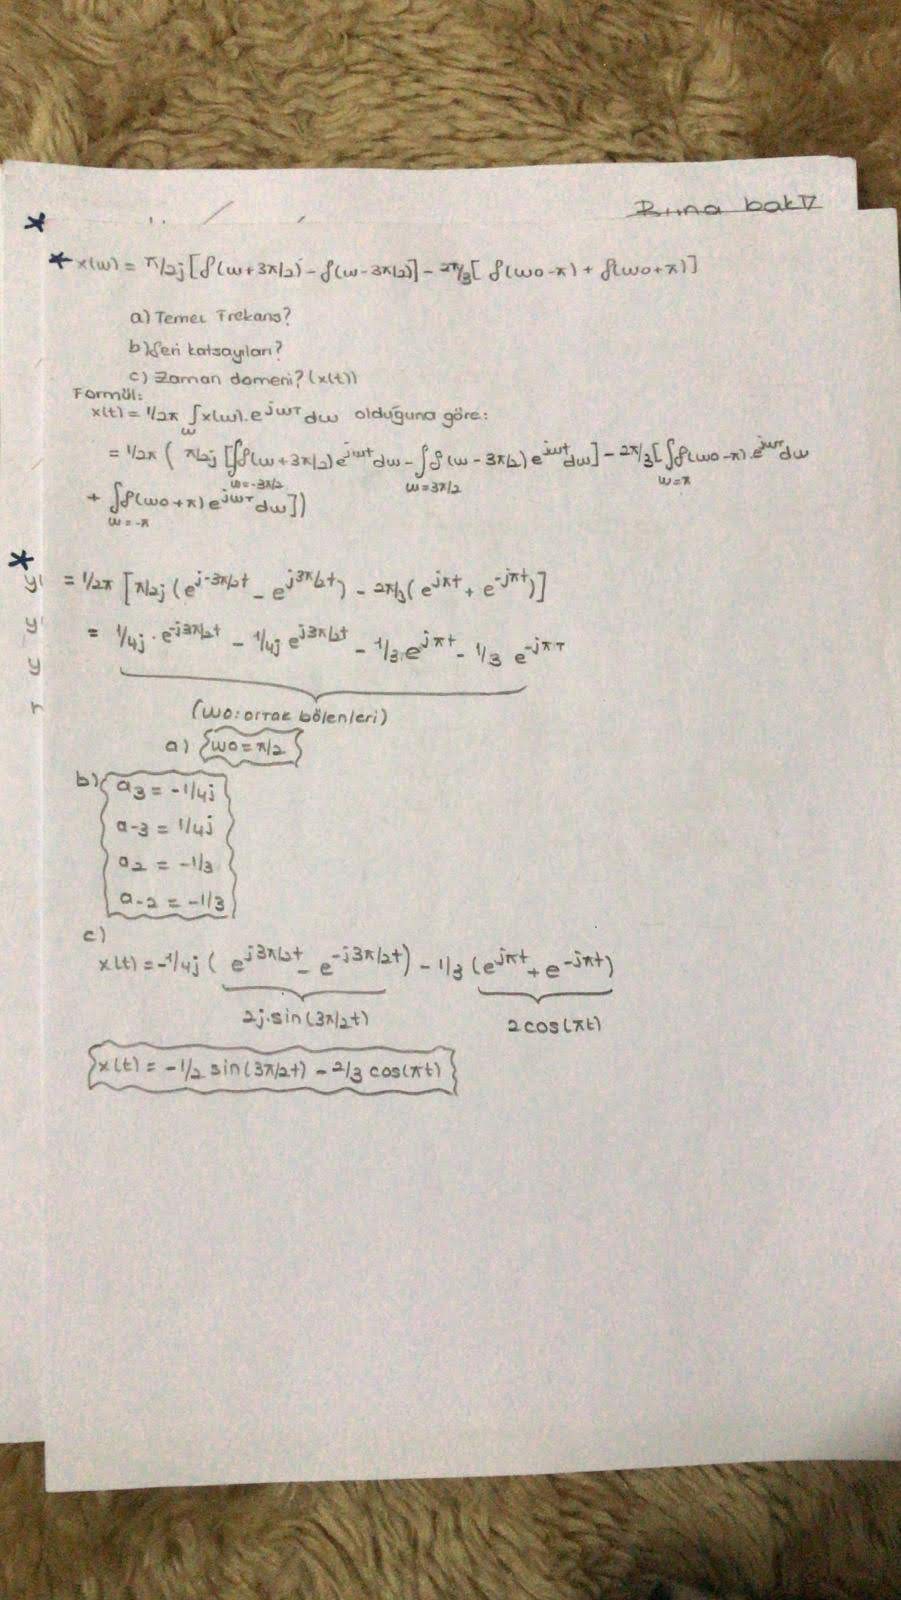 Buna bak
* x(w) = π/2j [δ(w+3π/2) - δ(w-3π/2)] - 2π/3[ δ(w0-π) + δ(w0+π)]
a) Temel Frekans?
b) Seri katsayıları?
c) Zaman domeni? (x(t))
Formül:
x(t) = 1/2π ∫x(w).e^jwt dw olduğuna göre:
w
= 1/2π ( π/2j [∫δ(w+3π/2)e^jwt dw - ∫δ(w-3π/2) e^jwt dw] - 2π/3[∫δ(w0-π).e^jwt dw
w=-3π/2 w=3π/2 w=π
+ ∫δ(w0+π) e^jwt dw])
w=-π
* y
= 1/2π [π/2j (e^j-3π/2t - e^j3π/2t) - 2π/3(e^jπt + e^-jπt)]
y
= 1/4j . e^-j3π/2t - 1/4j e^j3π/2t - 1/3.e^jπt - 1/3 e^-jπt
y
r
(w0: ortak bölenleri)
a) w0 = π/2
b) a3 = -1/4j
a-3 = 1/4j
a2 = -1/3
a-2 = -1/3
c)
x(t) = -1/4j ( e^j3π/2t - e^-j3π/2t) - 1/3 (e^jπt + e^-jπt)
2j.sin(3π/2t) 2cos(πt)
x(t) = -1/2 sin(3π/2t) - 2/3 cos(πt)